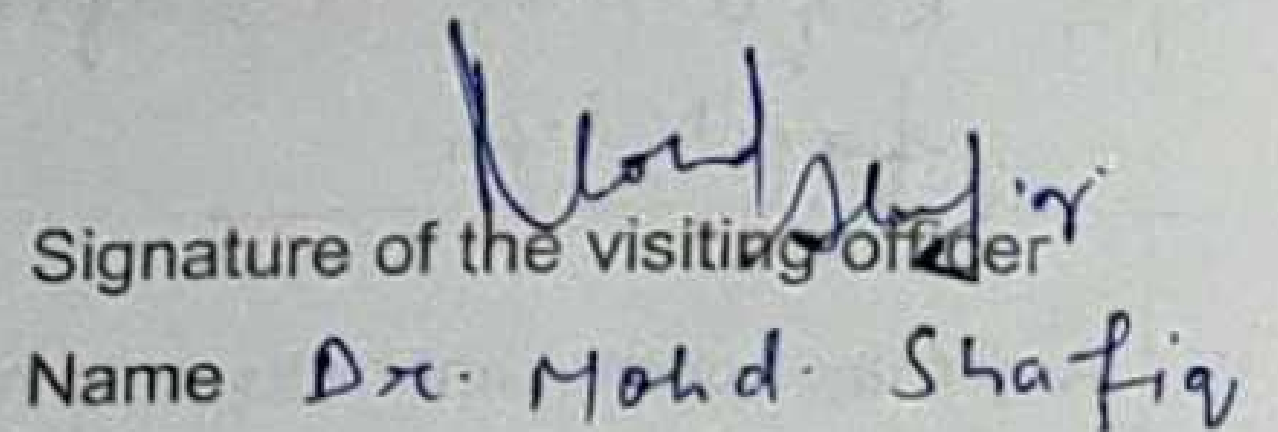 Mohd Shafiq
Signature of the visiting officer
Name Dr. Mohd. Shafiq